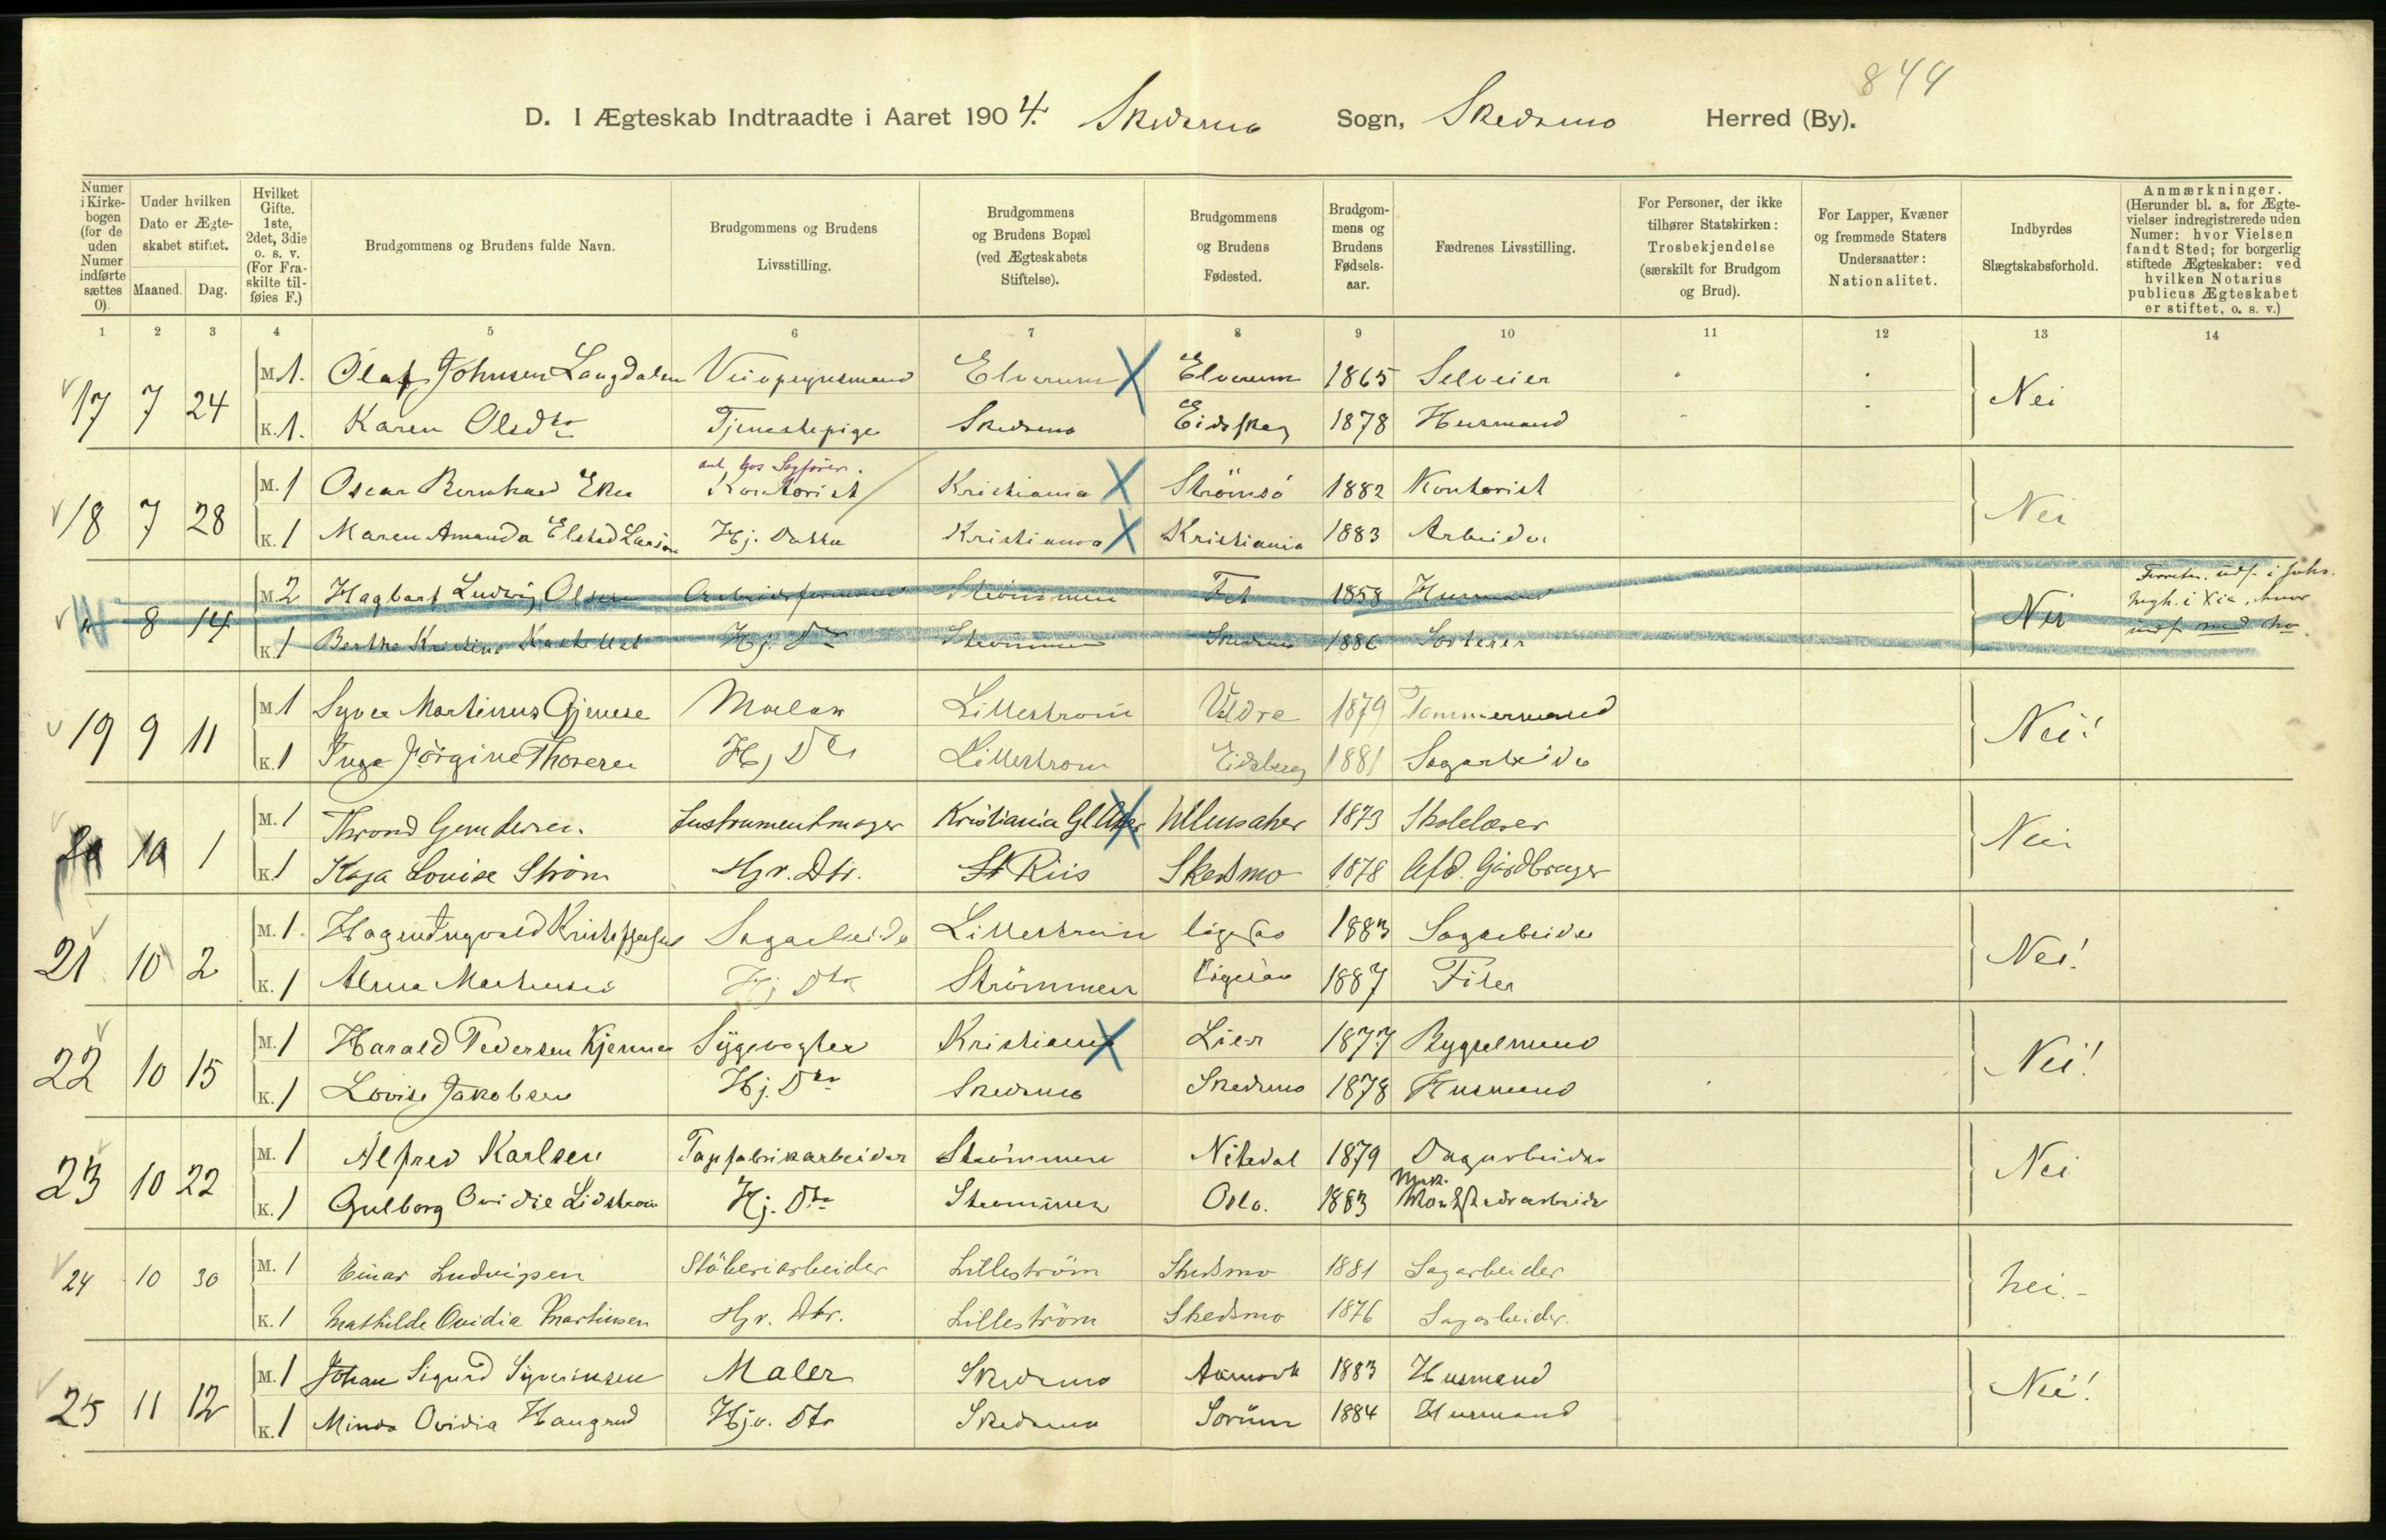 844
D. I Ægteskab Indtraadte i Aaret 1904. Skedsmo Sogn, Skedsmo Herred (By).
Numer i Kirkebogen (for de uden Numer indførte sættes 0).
Under hvilken Dato er Ægteskabet stiftet.
Maaned. Dag.
Hvilket Gifte. 1ste, 2det, 3die o. s. v. (For Fraskilte tilføies F.)
Brudgommens og Brudens fulde Navn.
Brudgommens og Brudens Livsstilling.
Brudgommens og Brudens Bopæl (ved Ægteskabets Stiftelse).
Brudgommens og Brudens Fødested.
Brudgommens og Brudens Fødselsaar.
Fædrenes Livsstilling.
For Personer, der ikke tilhører Statskirken: Trosbekjendelse (særskilt for Brudgom og Brud).
For Lapper, Kvæner og fremmede Staters Undersaatter: Nationalitet.
Indbyrdes Slægtskabsforhold.
Anmærkninger. (Herunder bl. a. for Ægtevielser indregistrerede uden Numer: hvor Vielsen fandt Sted; for borgerlig stiftede Ægteskaber: ved hvilken Notarius publicus Ægteskabet er stiftet, o. s. v.)
1 2 3 4 5 6 7 8 9 10 11 12 13 14
17 7 24 M. 1. Olaf Johnsen Langdalen Elverum Elverum 1865 Selveier Nei
K. 1. Karen Olsdtr Tjenestepige Skedsmo Eidskog 1878 Husmand
ans. hos Sagfører.
18 7 28 M. 1 Oscar Bernhard Eker Kontorist Kristiania Strömsö 1882 Kontorist Nei
K. 1 Maren Amanda Elstad Larsen Hj. Datter Kristiania Kristiania 1883 Arbeider
8 14 M. 2 Hagbart Ludvig Olsen Arbeidsformand Strömmen Fet 1858 Husmand Nei
K. 1 Berthe Kristine Hj. Dtr Strömmen Skedsmo 1886 Sorterer
19 9 11 M. 1 Syver Martinus Gjenese Maler Lillestrøm Udre 1879 Tømmermand Nei!
K. 1 Inga Jörgine Thoresen Hj Dtr Lillestrøm Eidsberg 1881 Sagarbeider
20 10 1 M. 1 Thrond Gundersen. Instrumentmager Kristiania Gl Aker Ullensaker 1873 Skolelærer Nei
K. 1 Kaja Louise Strøm Hjv. Dtr. St Riis Skedsmo 1878 Afd. Gårdbruger
21 10 2 M. 1. Hagen Ingvald Kristoffersen Sagarbeider Lillestrøm ligesaa 1883 Sagarbeider Nei!
K. 1 Alma Martinsen Hj Dtr Strömmen ligesaa 1887 Filer
22 10 15 M. 1 Harald Pedersen Kjenner Sygevogter Kristiania Lier 1877 Bygselmand Nei!
K. 1 Lovise Jakobsen Hj. Dtr Skedsmo Skedsmo 1878 Husmand
23 10 22 M. 1 Alfred Karlsen Tapfabrikarbeider Strömmen Nitedal 1879 Dagarbeider Nei
Mek.
K. 1 Gulborg Ovidie Lidstrøm Hj. Dtr Strømmen Oslo. 1883 Værkstedsarbeider
24 10 30 M. 1 Einar Ludvigsen Støberiarbeider Lilleström Skedsmo 1881 Sagarbeider Nei.
K. 1 Mathilde Ovidia Martinsen Hjv. Dtr. Lilleström Skedsmo 1876 Sagarbeider.
25 11 12 M. 1 Johan Sigurd Syverinsen Maler Skedsmo Aamodt 1883 Husmand Nei!
K. 1 Minda Ovidia Haugrud Hjv. Dtr Skedsmo Sorum 1884 Husmand